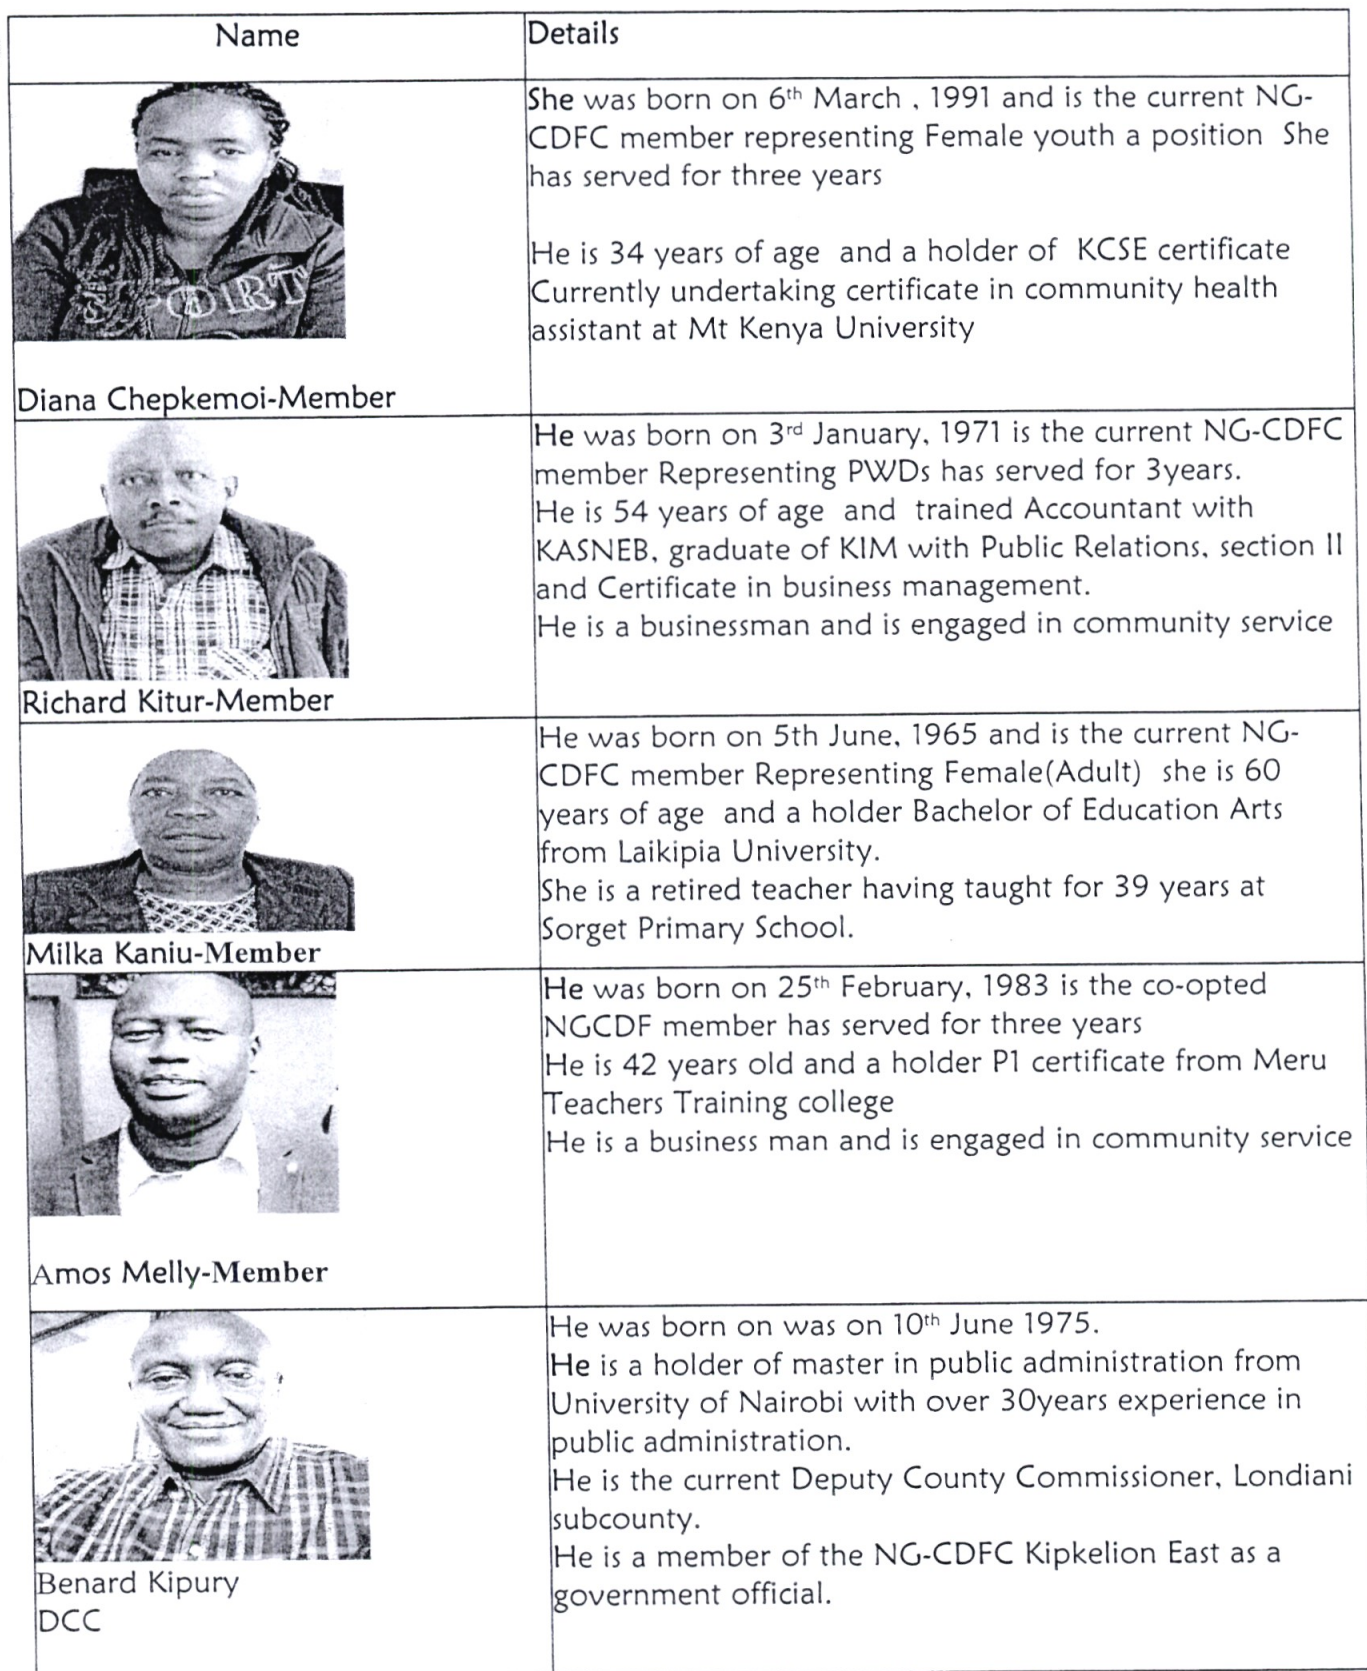 Name
Details
She was born on 6th March , 1991 and is the current NG-
CDFC member representing Female youth a position She
has served for three years
He is 34 years of age and a holder of KCSE certificate
Currently undertaking certificate in community health
assistant at Mt Kenya University
Diana Chepkemoi-Member
He was born on 3rd January, 1971 is the current NG-CDFC
member Representing PWDs has served for 3years.
He is 54 years of age and trained Accountant with
KASNEB, graduate of KIM with Public Relations, section II
and Certificate in business management.
He is a businessman and is engaged in community service
Richard Kitur-Member
He was born on 5th June, 1965 and is the current NG-
CDFC member Representing Female(Adult) she is 60
years of age and a holder Bachelor of Education Arts
from Laikipia University.
She is a retired teacher having taught for 39 years at
Sorget Primary School.
Milka Kaniu-Member
He was born on 25th February, 1983 is the co-opted
NGCDF member has served for three years
He is 42 years old and a holder P1 certificate from Meru
Teachers Training college
He is a business man and is engaged in community service
Amos Melly-Member
He was born on was on 10th June 1975.
He is a holder of master in public administration from
University of Nairobi with over 30years experience in
public administration.
He is the current Deputy County Commissioner, Londiani
subcounty.
He is a member of the NG-CDFC Kipkelion East as a
government official.
Benard Kipury
DCC